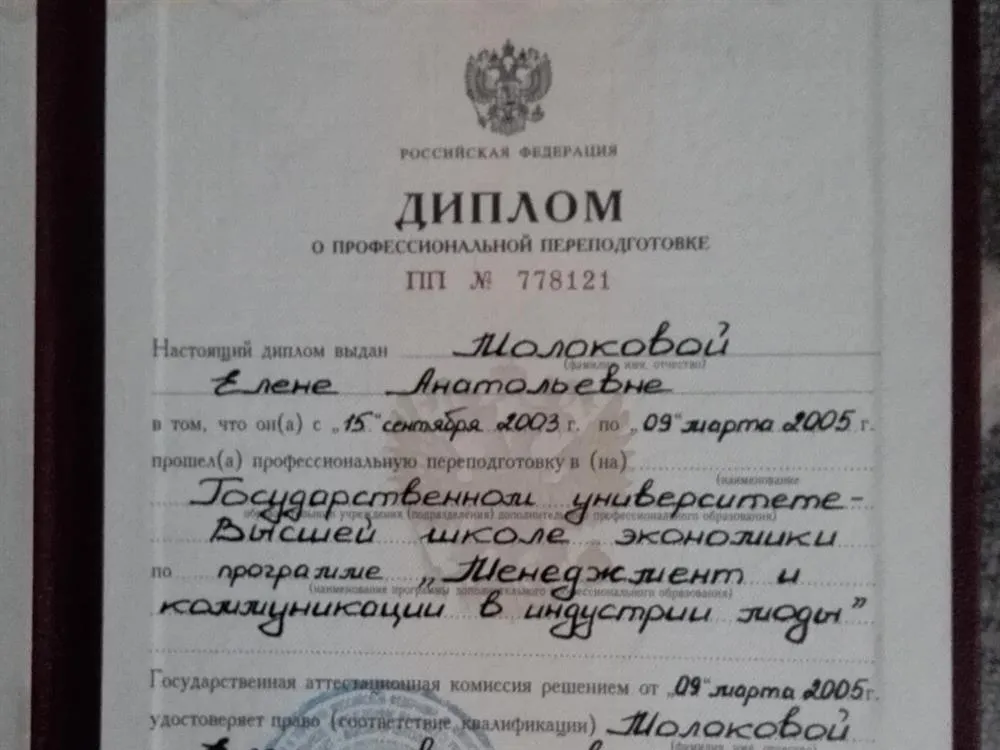 РОССИЙСКАЯ ФЕДЕРАЦИЯ
ДИПЛОМ
О ПРОФЕССИОНАЛЬНОЙ ПЕРЕПОДГОТОВКЕ
ПП № 778121
Настоящий диплом выдан Молоковой
(фамилия, имя, отчество)
Елене Анатольевне
в том, что он(а) с „15“ сентября 2003 г. по „09“ марта 2005 г.
прошел(а) профессиональную переподготовку в (на)
(наименование
Государственном университете –
образовательного учреждения (подразделения) дополнительного профессионального образования)
Высшей школе экономики
по программе „Менеджмент и
(наименование программы дополнительного профессионального образования)
коммуникации в индустрии моды”
Государственная аттестационная комиссия решением от „09“ марта 2005 г.
удостоверяет право (соответствие квалификации) Молоковой